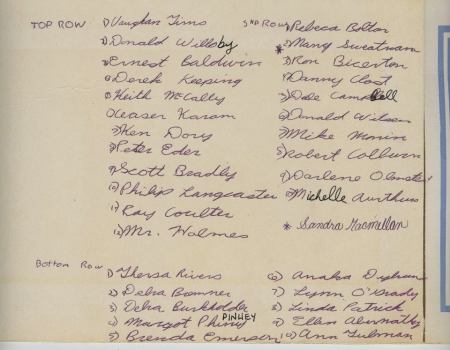 TOP ROW 1) Vaughan Tims
2) Donald Willoby
3) Ernest Baldwin
4) Derek Keeping
5) Keith McCally
6) Ceaser Karam
7) Ken Dory
8) Peter Eder
9) Scott Bradly
10) Philip Langcaster
11) Ray Coulter
12) Mr. Holmes
2ND ROW 1) Rebeca Bolton
* 2) Mary Sweatman
3) Ron Bicerton
4) Danny Clost
5) Dale Campbell
6) Donald Wilson
7) Mike Monin
8) Robert Colburn
9) Darlene Olmsted
10) Michelle Aurthus
* Sandra Macmillan
Bottom Row 1) Thersa Rivers
2) Debra Bromner
3) Debra Burkholder
4) Margot Phiny PINHEY
5) Brenda Emerson
6) Anaka
7) Lynn O'Grady
8) Linda Patrick
9) Ellen Abernathy
10) Ann Tubman